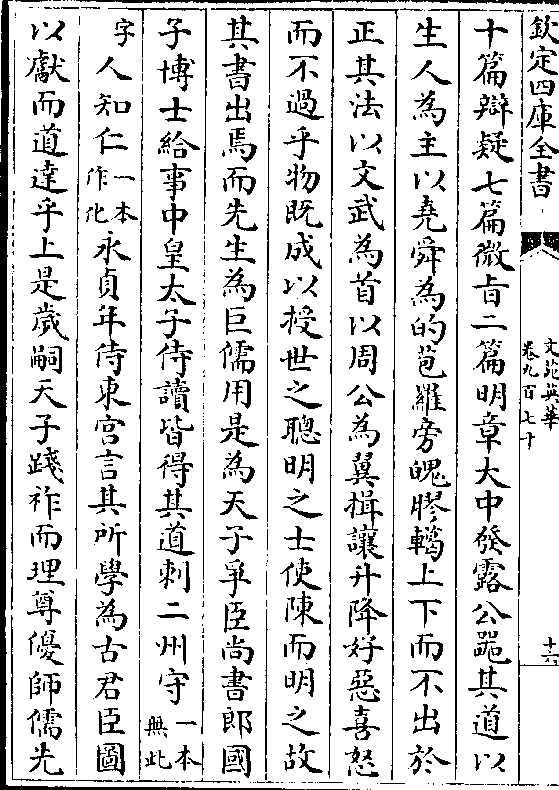 欽定四庫全書
文苑英華
卷九百七十
十六
十篇辯疑七篇微旨二篇明章大中發露公噐其道以
生人為主以堯舜為的苞羅旁魄膠轕上下而不出於
正其法以文武為首以周公為翼揖讓升降好惡喜怒
而不過乎物既成以授世之聰明之士使陳而明之故
其書出焉而先生為巨儒用是為天子爭臣尚書郎國
子博士給事中皇太子侍讀皆得其道刺二州守一本無此
字人知仁一本作化永貞年侍東宮言其所學為古君臣圖
以獻而道達乎上是歲嗣天子踐祚而理尊優師儒先